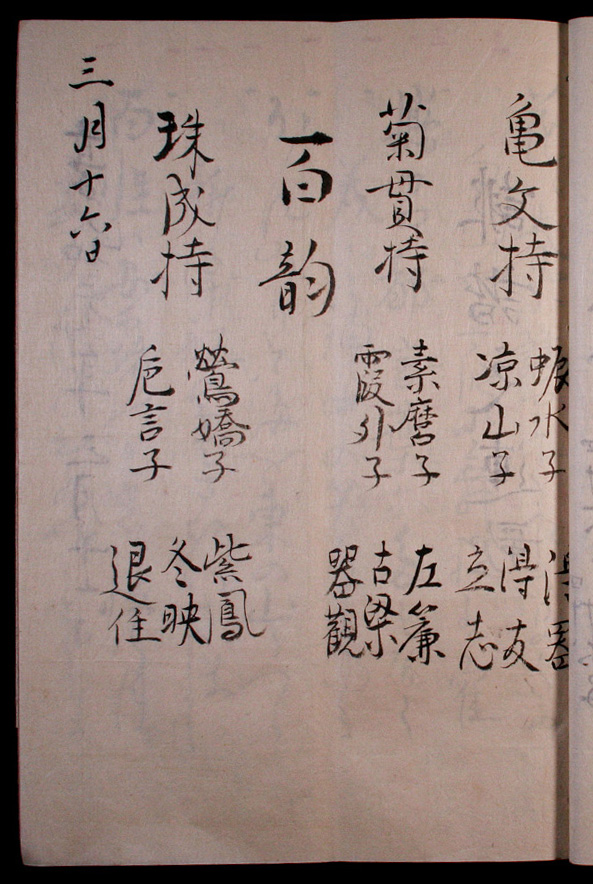 亀文持
蜧水子
凉山子
得友
立志
菊貫持
素麿子
霞外子
左簾
古梁
器觀
一百韵
珠成持
鶯嬌子
巵言子
紫鳳
冬映
退住
三月十六日